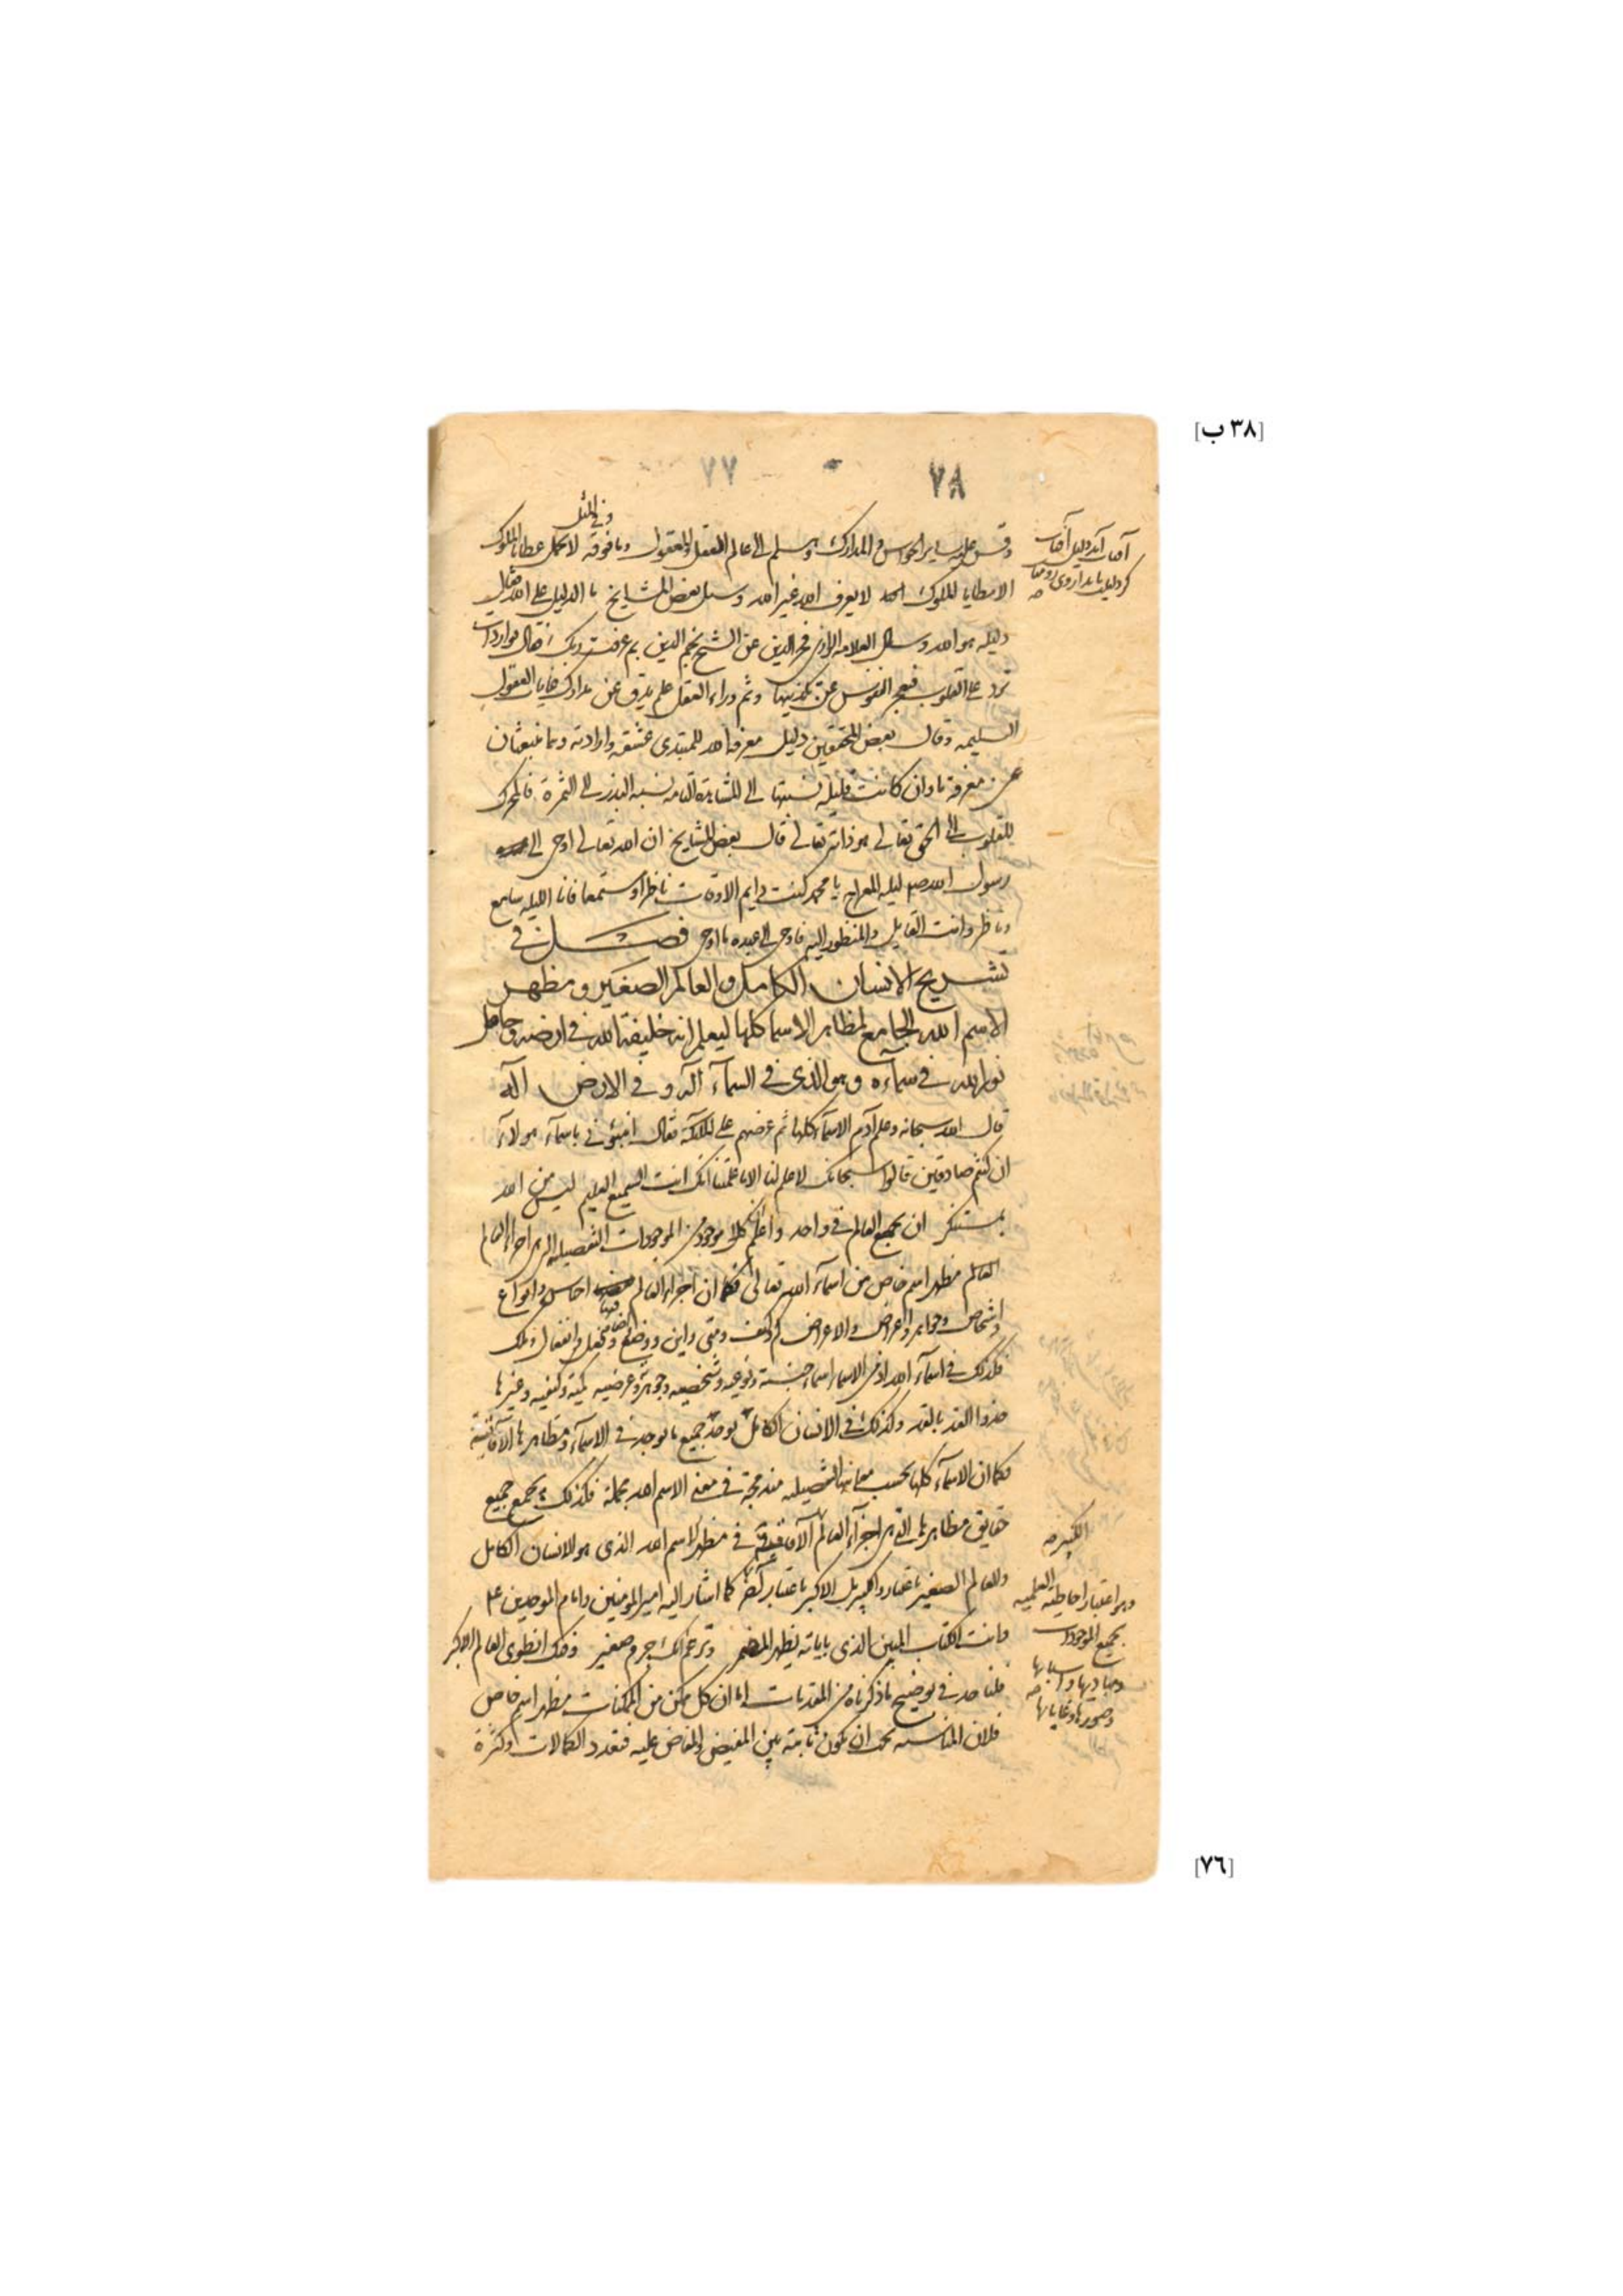 [٣٨ ب]
٧٨
٧٧
وفي المثل
وقس عليه ساير الحواس والمدارك وسلم الى عالم العقل والمعقول وما فوقه لا يحمل عطايا الملوك
الا مطايا الملوك لا يعرف الله غير الله وسئل بعض المشايخ ما الدليل على الله فقال
دليله هو الله وسئل العلامة الرازي فخر الدين عن الشيخ نجم الدين بم عرفت ربك قال بواردات
ترد على القلوب فتعجز النفوس عن تكذيبها وثم وراء العقل علم يدق عن مدارك غايات العقول
السليمه وقال بعض المحققين دليل معرفة الله للمبتدي عشقه وارادته وهما منبعثان
عن معرفة ما وان كانت قليله نسبتها الى المشاهدة التامه نسبه البذر الى الثمرة فالمحرك
للقلوب الى الحق تعالى هو ذاته تعالى قال بعض المشايخ ان الله تعالى اوحى الى
رسول الله صم ليله المعراج يا محمد كنت دايم الاوقات ناظرا ومستمعا فانا الليله سامع
وناظر وانت القايل والمنظور اليه فاوحى الى عبده ما اوحى فصل في
تشريح الانسان الكامل والعالم الصغير ومظهر
الاسم الله الجامع لمظاهر الاسما كلها ليعلم انه خليفة الله في ارضه وحامل
نور الله في سماءه وهو الذي في السمآء آله وفي الارض آله
قال الله سبحانه وعلم آدم الاسمآء كلها ثم عرضهم على الملائكة فقال انبئوني باسمآء هولآء
ان كنتم صادقين قالوا سبحانك لا علم لنا الا ما علمتنا انك انت السميع العليم ليس من الله
بمستنكر ان يجمع العالم في واحد واعلم ان كل موجود من الموجودات التفصيليه التي هي اجزاء العالم
العالم مظهر اسم خاص من اسمآء الله تعالى فكما ان اجزاء العالم فيها اجناس وانواع
واشخاص وجواهر واعراض والاعراض كم وكيف ومتى واين ووضع واضافه وفعل وانفعال وملك
فكذلك في اسمآء الله اذ من الاسما اسماء جنسية ونوعيه وشخصيه وجوهرية وعرضيه كميه وكيفيه وغيرها
حذوا القد بالقد وكذلك في الانسان الكامل يوجد جميع ما يوجد في الاسمآء ومظاهرها الآفاقية
فكما ان الاسمآء كلها بحسب معانيها التفصيليه مندمجة في معنى الاسم الله مجملة فكذلك يجمع جميع
حقايق مظاهرها التي هي اجزآء العالم الآفاقية في مظهر اسم الله الذي هو الانسان الكامل
والعالم الصغير باعتبار والكبير بل الاكبر باعتبار آخر كما اشار اليه امير المؤمنين وامام الموحدين ع
وانت الكتاب المبين الذي باياته يظهر المضمر وتزعم انك جرم صغير وفيك انطوى العالم الاكبر
فلناخذ في توضيح ما ذكرناه من المقدمات اما ان كل ممكن من الممكنات مظهر اسم خاص
فلان المناسبه يجب ان يكون ثابتة بين المفيض والمفاض عليه فتعدد الكمالات وكثرة
آفتاب آمد دليل آفتاب
كر دليلت بايد از وى رو متاب
الكبير صح
وهو اعتبار احاطته العلميه
بجميع الموجودات
ومباديها واسبابها
وصورتها وغاياتها
[٧٦]